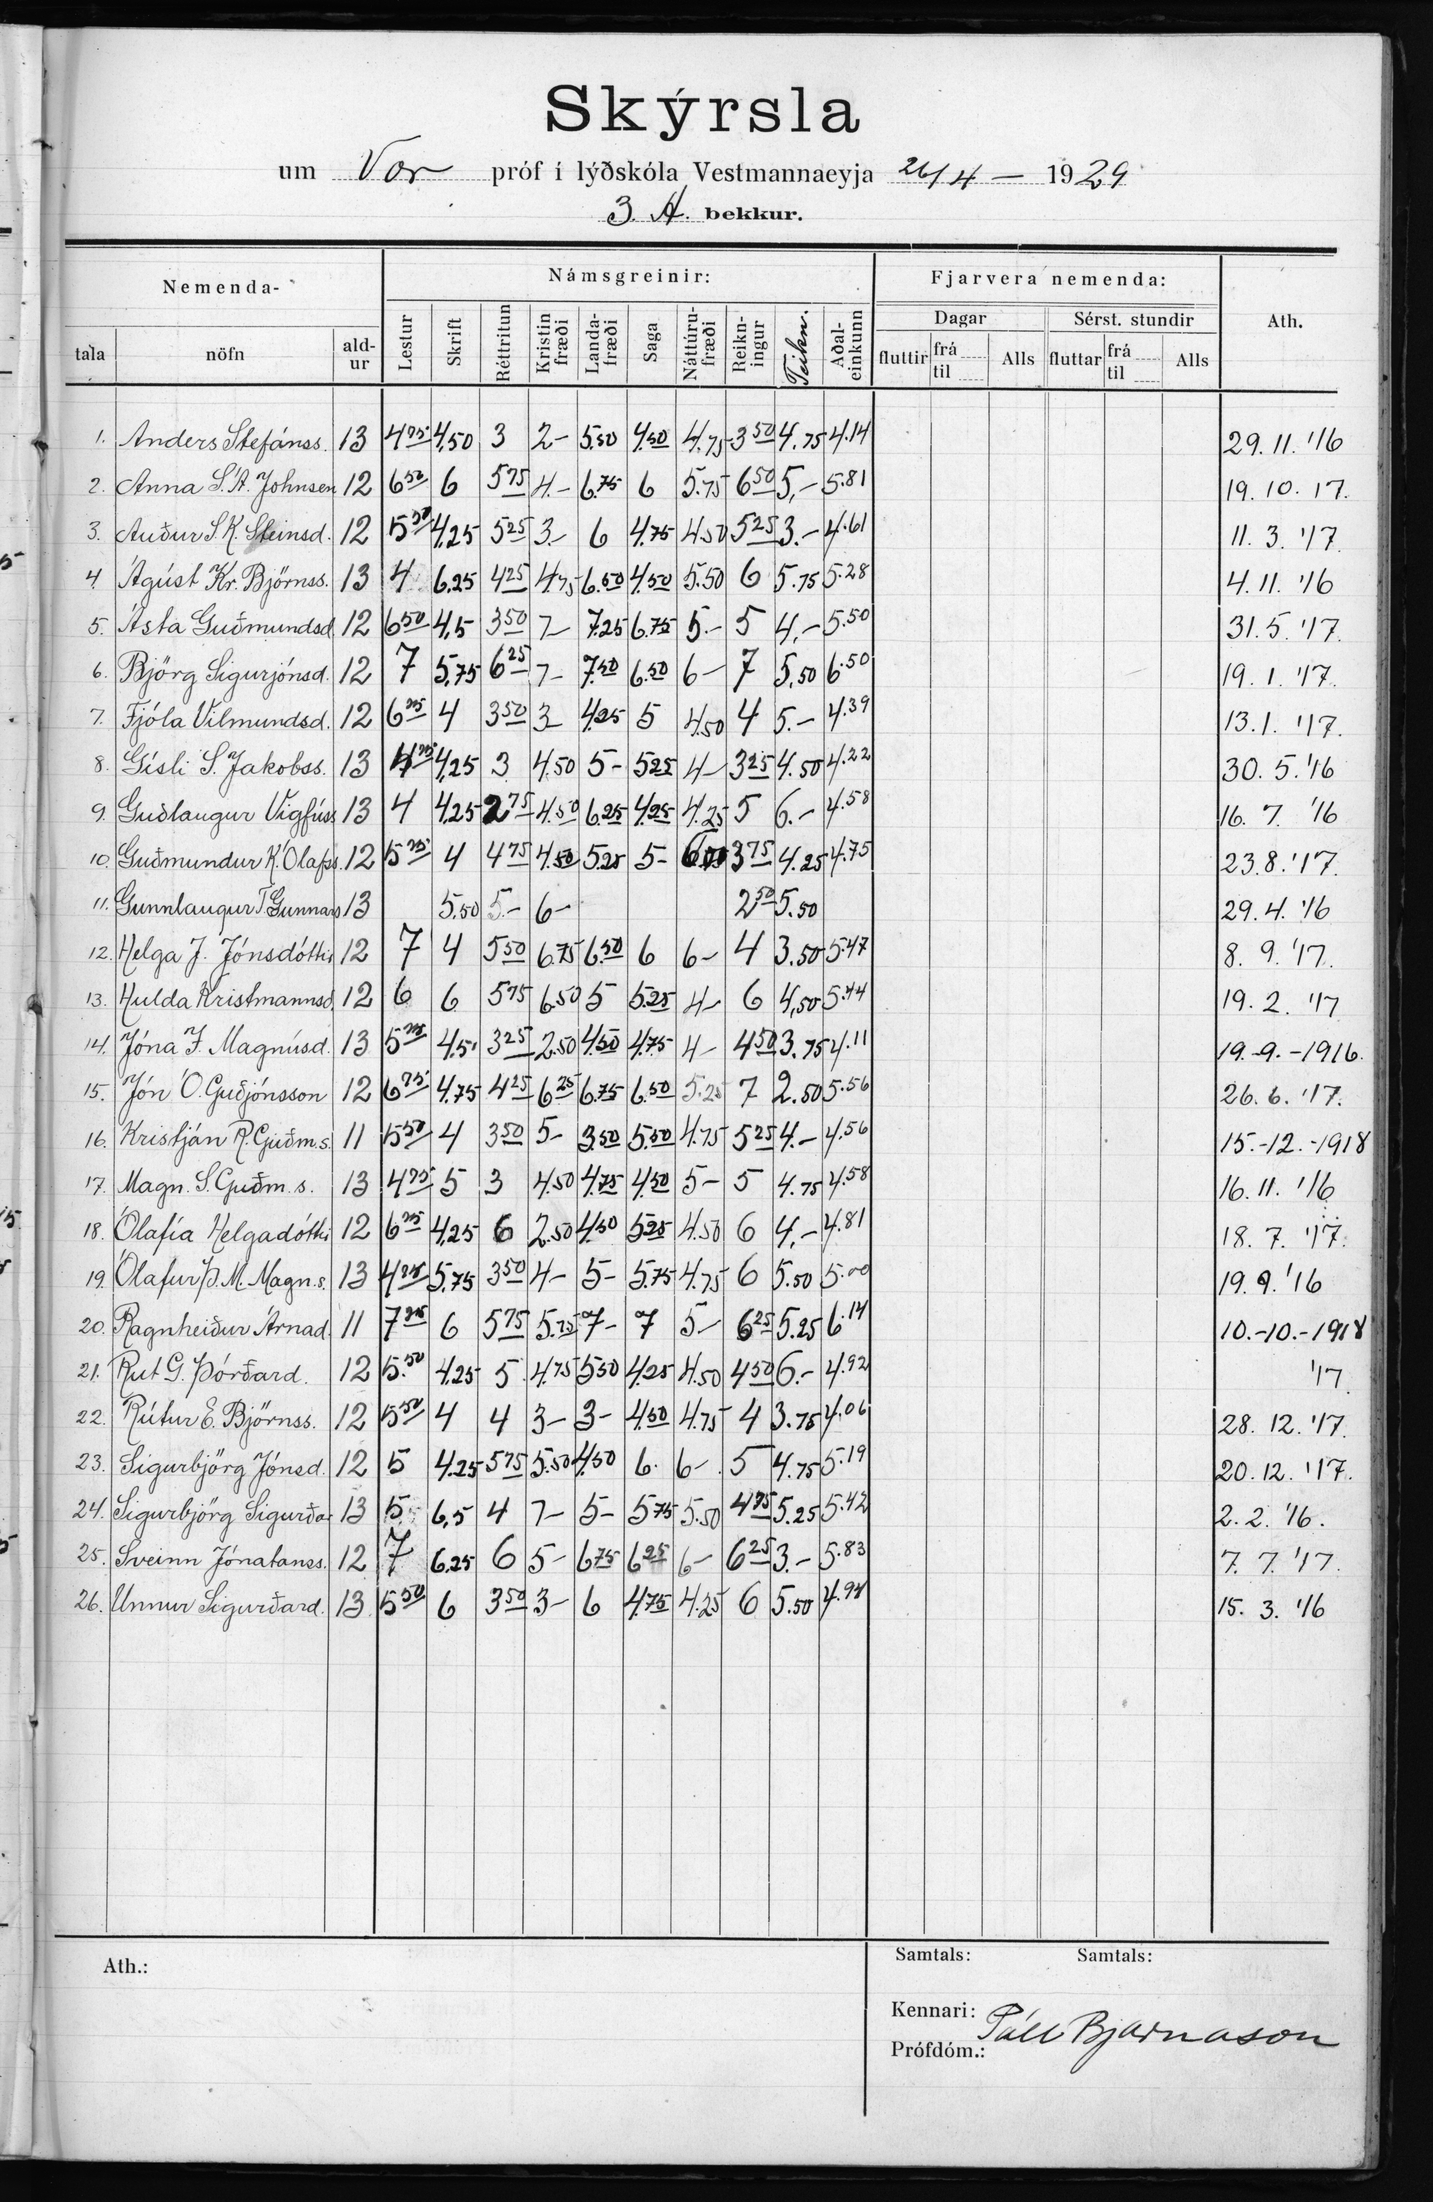 Skýrsla
um Vor próf í lýðskóla Vestmannaeyja 26/4 — 1929
3. A. bekkur.
Nemenda- Námsgreinir: Fjarvera nemenda: Ath.
Dagar Sérst. stundir
tala nöfn ald-ur Lestur Skrift Réttritun Kristin fræði Landa-fræði Saga Náttúru-fræði Reikn-ingur Teikn. Aðal-einkunn fluttir frá til Alls fluttar frá til Alls
1. Anders Stefánss. 13 4.75 4,50 3 2- 5.50 4.50 4.75 3 50 4.75 4.14 29. 11. '16
2. Anna S. A. Johnsen 12 6 50 6 5 75 4.- 6.75 6 5.75 6 50 5,- 5.81 19. 10. 17.
3. Auður S. K. Steinsd. 12 5 50 4,25 5 25 3.- 6 4.75 4.50 5 25 3.- 4.61 11. 3. '17
4. Ágúst Kr. Björnss. 13 4 6,25 4 25 4.75 6.50 4.50 5.50 6 5.75 5.28 4. 11. '16
5. Ásta Guðmundsd. 12 6 50 4,5 3 50 7- 7.25 6.75 5.- 5 4,- 5.50 31. 5. '17.
6. Björg Sigurjónsd. 12 7 5,75 6 25 7- 7.50 6.50 6- 7 5,50 6.50 19. 1. '17.
7. Fjóla Vilmundsd. 12 6 75 4 3 50 3 4.25 5 4.50 4 5.- 4.39 13. 1. '17.
8. Gísli S. Jakobss. 13 4 75 4,25 3 4.50 5- 5 25 4- 3 25 4.50 4.22 30. 5. '16
9. Guðlaugur Vigfúss 13 4 4,25 2 75 4.50 6.25 4.25 4.25 5 6.- 4.58 16. 7. '16
10. Guðmundur K. Ólafss. 12 5 75 4 4 75 4.50 5.25 5- 3 75 4.25 4.75 23. 8. '17.
11. Gunnlaugur T. Gunnars 13 5.50 5.- 6- 2 50 5.50 29. 4. '16
12. Helga J. Jónsdóttir 12 7 4 5 50 6.75 6.50 6 6- 4 3.50 5.47 8. 9. '17.
13. Hulda Kristmannsd. 12 6 6 5 75 6.50 5 5.25 4- 6 4,50 5.44 19. 2. '17
14. Jóna F. Magnúsd. 13 5 75 4.5 3 25 2.50 4.50 4.75 4- 4 50 3.75 4.11 19.-9.-1916.
15. Jón Ó. Guðjónsson 12 6 75 4.75 4 25 6 25 6.75 6.50 5.25 7 2.50 5.56 26. 6. '17.
16. Kristján R. Guðm.s. 11 5 50 4 3 50 5- 3.50 5.50 4.75 5 25 4.- 4.56 15.-12.-1918
17. Magn. S. Guðm.s. 13 4 75 5 3 4.50 4.75 4.50 5- 5 4.75 4.58 16. 11. '16
18. Ólafía Helgadóttir 12 6 75 4,25 6 2.50 4.50 5.25 4.50 6 4,- 4.81 18. 7. '17.
19. Ólafur Þ. M. Magn.s. 13 4 75 5,75 3 50 4- 5- 5.75 4.75 6 5.50 5.00 19. 9. '16
20. Ragnheiður Árnad. 11 7 25 6 5 75 5.75 7- 7 5- 6 25 5.25 6.14 10.-10.-1918
21. Rut G. Þórðard. 12 5.50 4,25 5 4.75 5 50 4.25 4.50 4 50 6.- 4.92 '17.
22. Rútur E. Björnss. 12 5 50 4 4 3- 3- 4.50 4.75 4 3.75 4.06 28. 12. '17.
23. Sigurbjörg Jónsd. 12 5 4.25 5 75 5.50 4.50 6. 6- 5 4.75 5.19 20. 12. '17.
24. Sigurbjörg Sigurðar 13 5 6,5 4 7- 5- 5 75 5.50 4 75 5.25 5.42 2. 2. '16.
25. Sveinn Jónatanss. 12 7 6.25 6 5- 6 75 6 25 6- 6 25 3.- 5.83 7. 7. '17.
26. Unnur Sigurðard. 13 5 50 6 3 50 3- 6 4.75 4.25 6 5.50 4.94 15. 3. '16
Ath.: Samtals: Samtals:
Kennari: Páll Bjarnason
Prófdóm.: